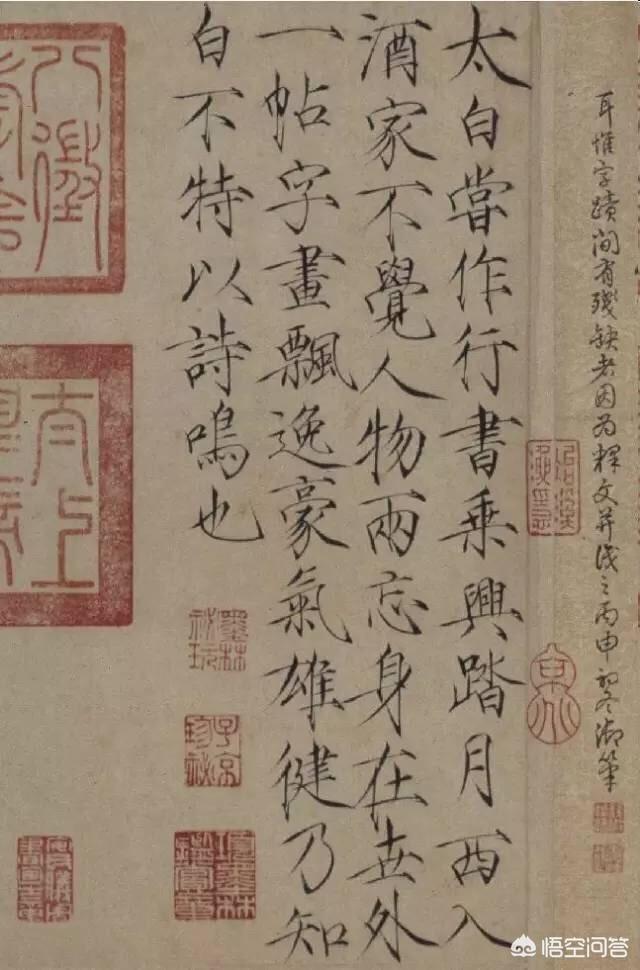 耳惟字蹟間有殘缺者因為釋文并識之丙申初冬御筆
太白嘗作行書乘興踏月西入
酒家不覺人物兩忘身在世外
一帖字畫飄逸豪氣雄健乃知
白不特以詩鳴也
墨林
秘玩
項墨林
鑑賞章
八徵
太上
悟空问答